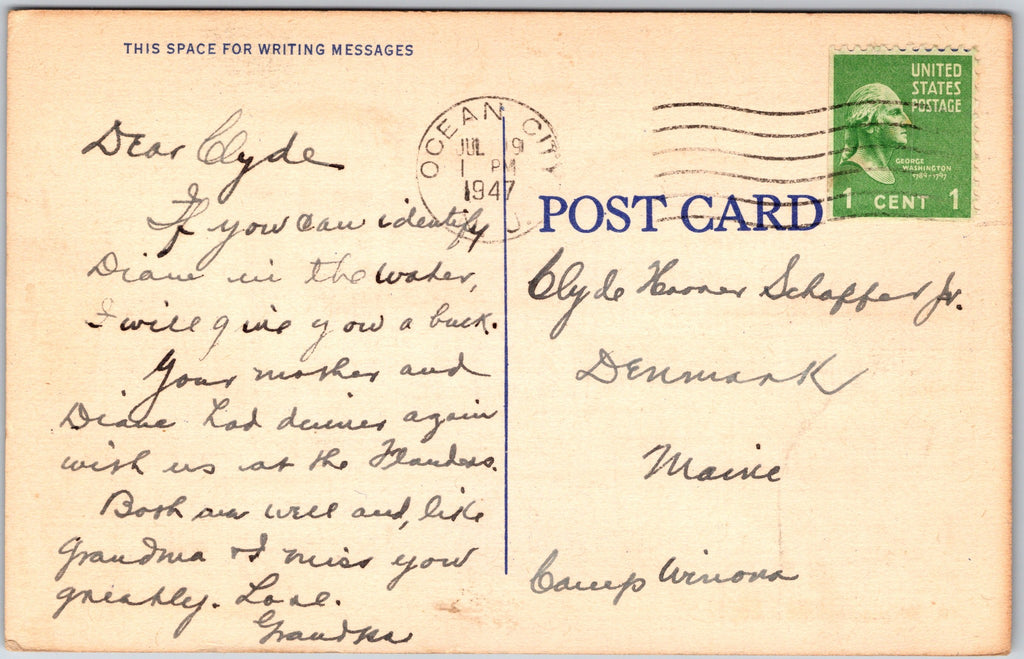 THIS SPACE FOR WRITING MESSAGES
Dear Clyde
If you can identify
Diane in the water,
I will give you a buck.
Your mother and
Diane had dinner again
with us at the Flanders.
Both are well and, like
Grandma & I miss you
greatly. Love.
Grandpa
OCEAN CITY
JUL 19
1 PM
1947
N. J.
UNITED
STATES
POSTAGE
GEORGE
WASHINGTON
1789-1797
1 CENT 1
POST CARD
Clyde Horner Schaffer Jr.
DENMARK
Maine
Camp Winona